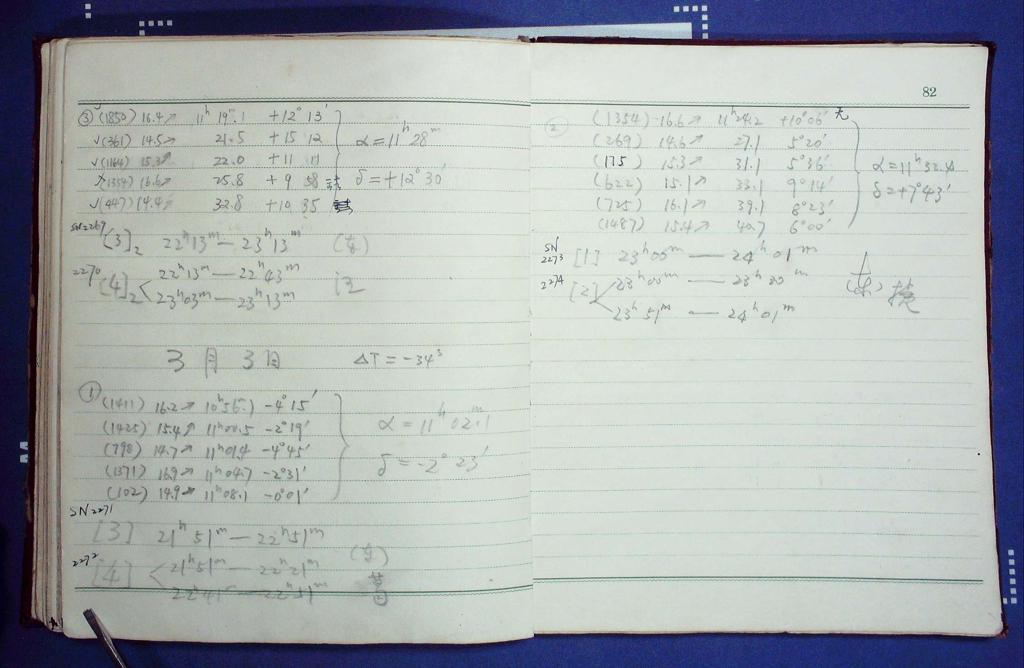 ③ √(1850) 16.4↗ 11ʰ 19ᵐ.1 +12° 13′
√(361) 14.5↗ 21.5 +15 12 α=11ʰ 28ᵐ
√(1164) 15.3↗ 22.0 +11 11
(1354) 16.6↗ 25.8 +9 58 δ=+12° 30′
√(447) 14.4↗ 32.8 +10 35
SN2269 [3]₂ 22ʰ13ᵐ—23ʰ13ᵐ
2270 [4]₂ 22ʰ13ᵐ—22ʰ43ᵐ
23ʰ03ᵐ—23ʰ13ᵐ
3月3日 ΔT=-34ˢ
① (1411) 16.2↗ 10ʰ56ᵐ.1 -4° 15′
(1425) 15.4↗ 11ʰ00.5 -2° 19′ α=11ʰ 02ᵐ.1
(798) 14.7↗ 11ʰ01.4 -4° 45′
(1371) 16.9↗ 11ʰ04.7 -2° 31′ δ=-2° 23′
(102) 14.9↗ 11ʰ08.1 -0° 01′
SN2271
[3] 21ʰ51ᵐ—22ʰ51ᵐ
2272 [4] 21ʰ51ᵐ—22ʰ21ᵐ
22ʰ41ᵐ—22ʰ51ᵐ
82
② (1354) 16.6↗ 11ʰ24.2 +10°06′
(269) 14.6↗ 27.1 5°20′
(175) 15.3↗ 31.1 5°36′ α=11ʰ32.4
(622) 15.1↗ 33.1 9°14′ δ=+7°43′
(725) 16.1↗ 39.1 8°23′
(1487) 15.4↗ 40.7 6°00′
SN2273 [1] 23ʰ00ᵐ—24ʰ01ᵐ
2274 [2] 23ʰ00ᵐ—23ʰ30ᵐ
23ʰ51ᵐ—24ʰ01ᵐ